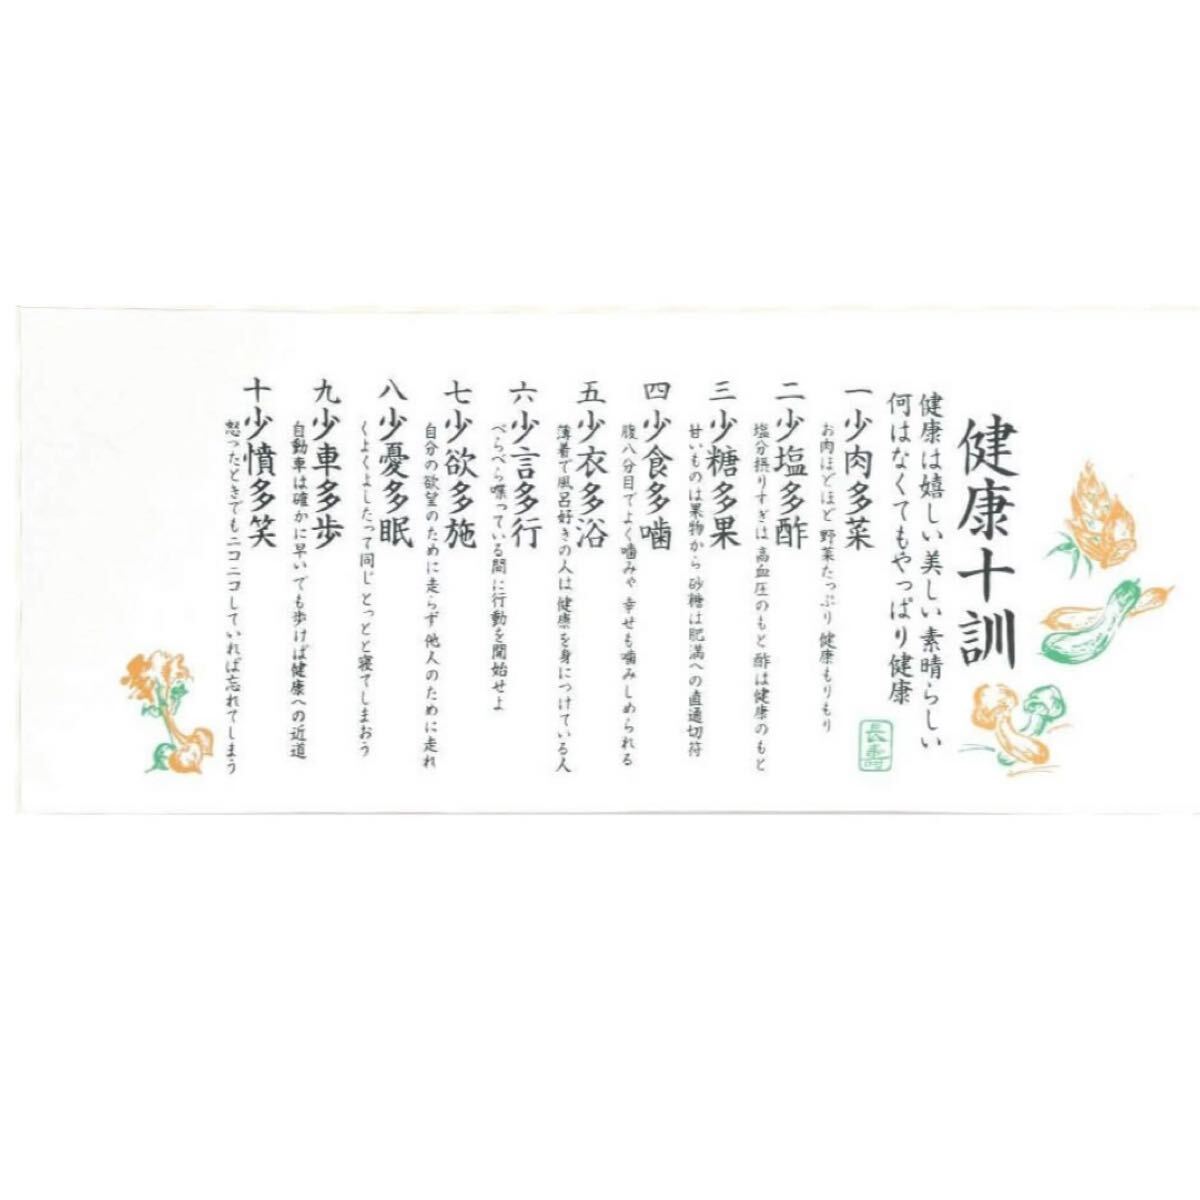 健康十訓
健康は嬉しい美しい素晴らしい
何はなくてもやっぱり健康
長寿
一少肉多菜
お肉ほどほど 野菜たっぷり 健康もりもり
二少塩多酢
塩分摂りすぎは 高血圧のもと 酢は健康のもと
三少糖多果
甘いものは果物から 砂糖は肥満への直通切符
四少食多噛
腹八分目でよく噛みゃ 幸せも噛みしめられる
五少衣多浴
薄着で風呂好きの人は 健康を身につけている人
六少言多行
べらべら喋っている間に行動を開始せよ
七少欲多施
自分の欲望のために走らず 他人のために走れ
八少憂多眠
くよくよしたって同じ とっとと寝てしまおう
九少車多歩
自動車は確かに早い でも歩けば健康への近道
十少憤多笑
怒ったときでもニコニコしていれば忘れてしまう